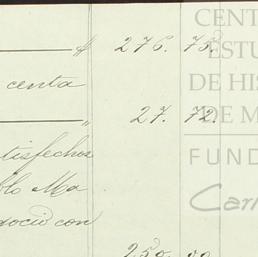 $ 276. 73.
centa
" 27. 72.
tisfechos
blo Ma
250. 00
CENT
ESTU
DE HIS
DE M
FUND
Carl